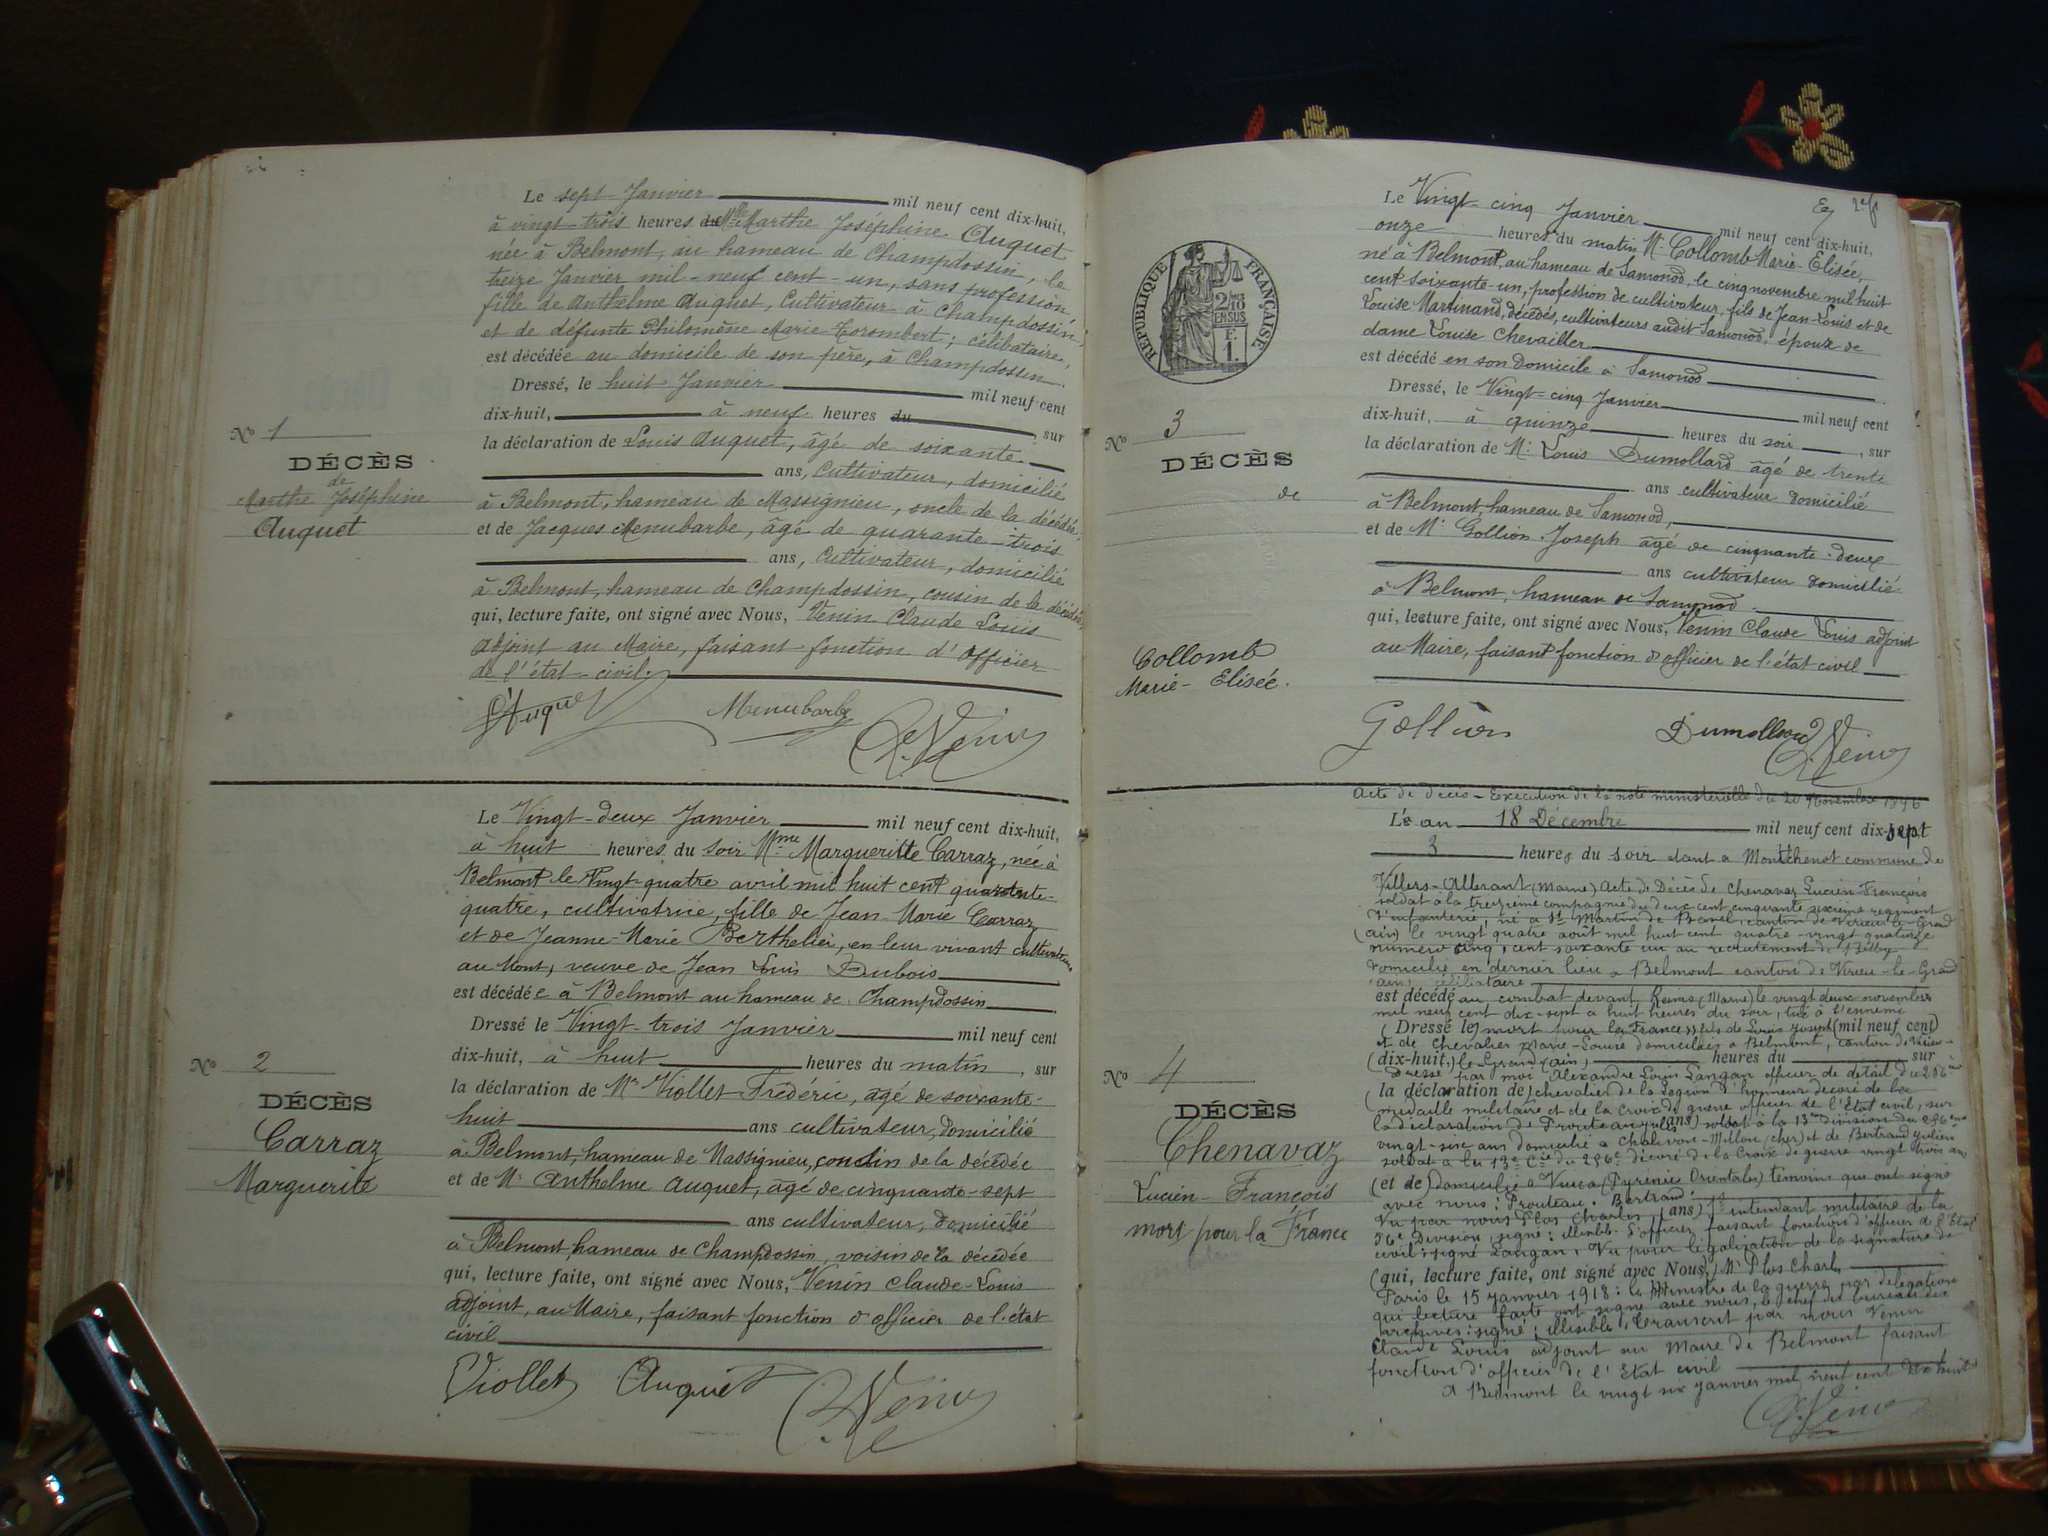 Le sept Janvier mil neuf cent dix-huit,
à vingt-trois heures du Mlle Marthe Joséphine Auguet
née à Belmont, au hameau de Champdossin, le
treize Janvier mil-neuf cent-un, sans profession,
fille de Anthelme Auguet, Cultivateur à Champdossin,
et de défunte Philomène Marie Corombert; célibataire,
est décédée au domicile de son père, à Champdossin.
Dressé, le huit Janvier mil neuf cent
dix-huit, à neuf heures du , sur
la déclaration de Louis Auguet, âgé de soixante
ans, Cultivateur, domicilié
à Belmont, hameau de Massignieu, oncle de la décédée,
et de Jacques Menubarbe, âgé de quarante-trois
ans, Cultivateur, domicilié
à Belmont, hameau de Champdossin, cousin de la décédée,
qui, lecture faite, ont signé avec Nous, Venin Claude Louis
Adjoint au Maire, faisant fonction d'Officier
de l'état-civil.
Auguet Menubarbe Venin
No 1
DÉCÈS
de
Marthe Joséphine
Auguet
Le Vingt-deux Janvier mil neuf cent dix-huit,
à huit heures du soir Mme Marguerite Carraz, née à
Belmont le Vingt-quatre avril mil huit cent quarante-
quatre, cultivatrice, fille de Jean-Marie Carraz
et de Jeanne-Marie Berthelier, en leur vivant cultivateurs
au Mont, veuve de Jean Louis Dubois
est décédée à Belmont au hameau de Champdossin
Dressé le Vingt-trois Janvier mil neuf cent
dix-huit, à huit heures du matin, sur
la déclaration de Mr Viollet Frédéric, âgé de soixante-
huit ans cultivateur, domicilié
à Belmont, hameau de Massignieu, cousin de la décédée
et de Mr Anthelme Auguet, âgé de cinquante-sept
ans cultivateur, domicilié
à Belmont, hameau de Champdossin, voisin de la décédée
qui, lecture faite, ont signé avec Nous, Venin Claude-Louis
adjoint, au Maire, faisant fonction d'officier de l'état
civil
Viollet Auguet Venin
No 2
DÉCÈS
Carraz
Marguerite
Le Vingt-cinq Janvier mil neuf cent dix-huit,
onze heures du matin Mr Collomb Marie-Elisée,
né à Belmont, au hameau de Samonod, le cinq novembre mil huit
cent soixante-un, profession de cultivateur, fils de Jean-Louis et de
Louise Martinand, décédés, cultivateurs audit Samonod, époux de
dame Louise Chevailler
est décédé en son domicile à Samonod
Dressé, le Vingt-cinq Janvier mil neuf cent
dix-huit, à quinze heures du soir, sur
la déclaration de Mr Louis Dumollard âgé de trente
ans cultivateur domicilié
à Belmont, hameau de Samonod,
et de Mr Gollion Joseph âgé de cinquante-deux
ans cultivateur domicilié
à Belmont, hameau de Samonod.
qui, lecture faite, ont signé avec Nous, Venin Claude Louis adjoint
au Maire, faisant fonction d'officier de l'état civil
Gollion Dumollard Venin
RÉPUBLIQUE FRANÇAISE
2/10 EN SUS
F.
1.
No 3
DÉCÈS
de
Collomb
Marie-Elisée.
Acte de décès - Exécution de la note ministérielle du 20 Novembre 1896
L'an 18 Décembre mil neuf cent dix-sept
3 heures du soir étant à Montchenot commune de
Villers-Allerant (Marne) Acte de Décès de Chenavaz Lucien-François
soldat à la treizième compagnie du deux cent cinquante sixième régiment
d'infanterie, né à St Martin de Bavel, canton de Virieu le Grand
(Ain) le vingt quatre août mil huit cent quatre-vingt quatorze
numéro cinq cent soixante un au recrutement de Belley
domicilié en dernier lieu à Belmont canton de Virieu-le-Grand
(Ain) célibataire
est décédé au combat devant Reims (Marne) le vingt deux novembre
mil neuf cent dix-sept à huit heures du soir, tué à l'ennemi
(Dressé le) mort pour la France, fils de Louis Joseph (mil neuf cent)
et de Chevalier Marie-Louise domiciliés à Belmont, canton de Virieu-
(dix-huit,) le Grand (Ain) heures du sur
Dressé par moi Alexandre Louis Langan officier de détail du 256e
(la déclaration de) chevalier de la Légion d'honneur décoré de la
médaille militaire et de la croix de guerre officier de l'Etat civil, sur
la déclaration de Prouteau (ans) soldat à la 13e division du 256e
vingt-six ans domicilié à Chalivoy-Millon (Cher) et de Bertrand Julien
soldat à la 13e Cie du 256e décoré de la Croix de guerre vingt trois ans
(et de) domicilié à (Pyrénées Orientales) témoins qui ont signé
avec nous: Prouteau. Bertrand.
Vu par nous Plos Charles (ans) intendant militaire de la
division signé: illisible. L'officier faisant fonction d'officier de l'Etat
civil: signé Langan, Vu pour légalisation de la signature de
(qui, lecture faite, ont signé avec Nous,) Mr Plos Charles
Paris le 15 Janvier 1918: le Ministre de la guerre par délégation
qui lecture faite ont signé avec nous, le chef du bureau des
archives: signé: illisible, transcrit par nous Venin
Claude Louis adjoint au Maire de Belmont faisant
fonction d'officier de l'Etat civil
A Belmont le vingt six janvier mil neuf cent dix huit
Venin
No 4
DÉCÈS
Chenavaz
Lucien-François
mort pour la France